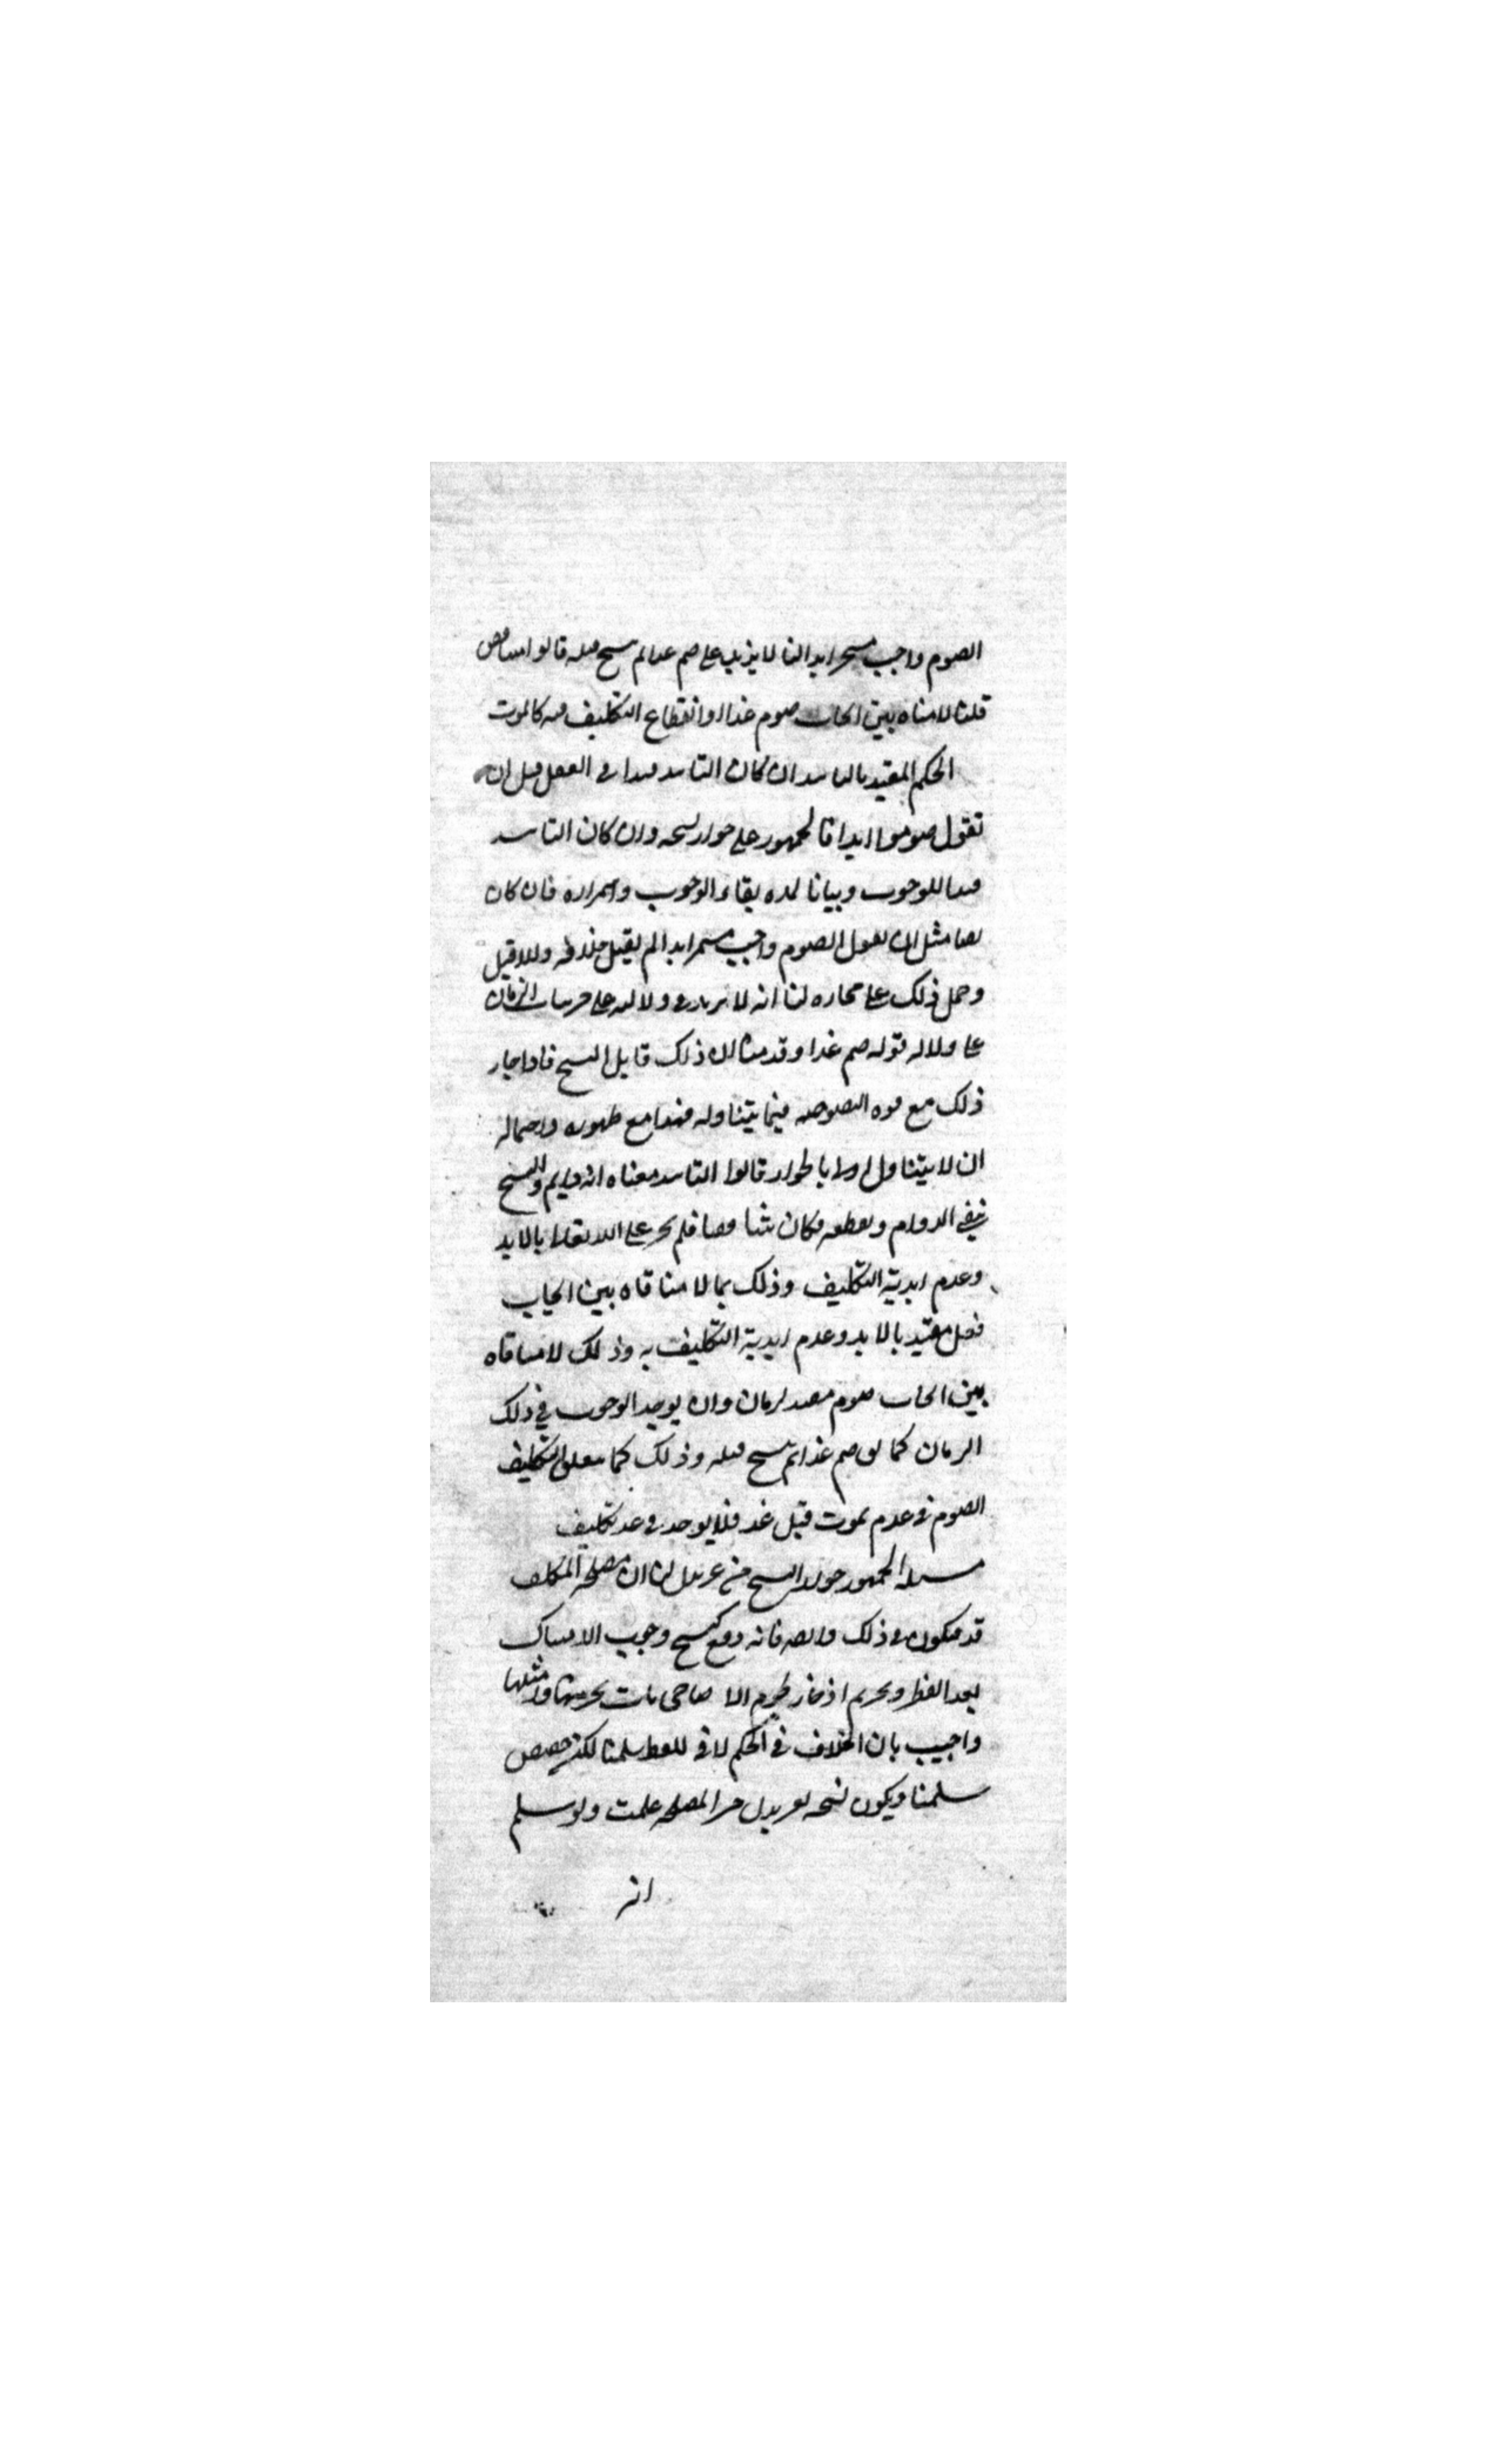 الصوم واجب مستمر ابدا لنا لا يزيد على صم غدا ثم نسخ قبله قالوا متناقض
قلنا لا منافاه بين ايجاب صوم غدا وانقطاع التكليف قبله كالموت
الحكم المقيد بالتابيد ان كان التابيد قيدا في الفعل مثل ان
تقول صوموا ابدا فالجمهور على جواز نسخه وان كان التابيد
قيدا للوجوب وبيانا لمده بقاء الوجوب واستمراره فان كان
نصا مثل ان يقول الصوم واجب مستمر ابدا لم يقبل خلافه والا قبل
وحمل ذلك على مجازه لنا انه لا يزيد في دلالته على جزييات الزمان
على دلاله قوله صم غدا وقد منا ان ذلك قابل النسخ فاذا جاز
ذلك مع قوه النصوصيه فيما يتناوله فهذا مع ظهوره واحتماله
ان لا يتناول اولى بالجواز قالوا التابيد معناه انه دايم والنسخ
ينفي الدوام ويقطعه فكان متناقضا فلم يجز على الله تعالى بالابد
وعدم ابدية التكليف وذلك بما لا منافاه بين ايجاب
فعل مقيد بالابد وعدم ابدية التكليف به وذلك لا منافاه
بين ايجاب صوم مقيد بزمان وان يوجد الوجوب في ذلك
الزمان كما في صم غدا ثم نسخ قبله وذلك كما يتعلق التكليف
الصوم في عدم يموت قبل غد فلا يوجد في غد تكليف
مسله الجمهور جواز النسخ من غير بدل لنا ان مصلحة المكلف
قد تكون في ذلك وايضا فانه وقع كنسخ وجوب الامساك
بعد الفطر وتحريم ادخار لحوم الاضاحي
واجيب بان الخلاف في الحكم لا في اللفظ سلمنا لكن خصص
سلمنا ويكون نسخه لغير بدل المصلحه علمت ولو سلم
انه